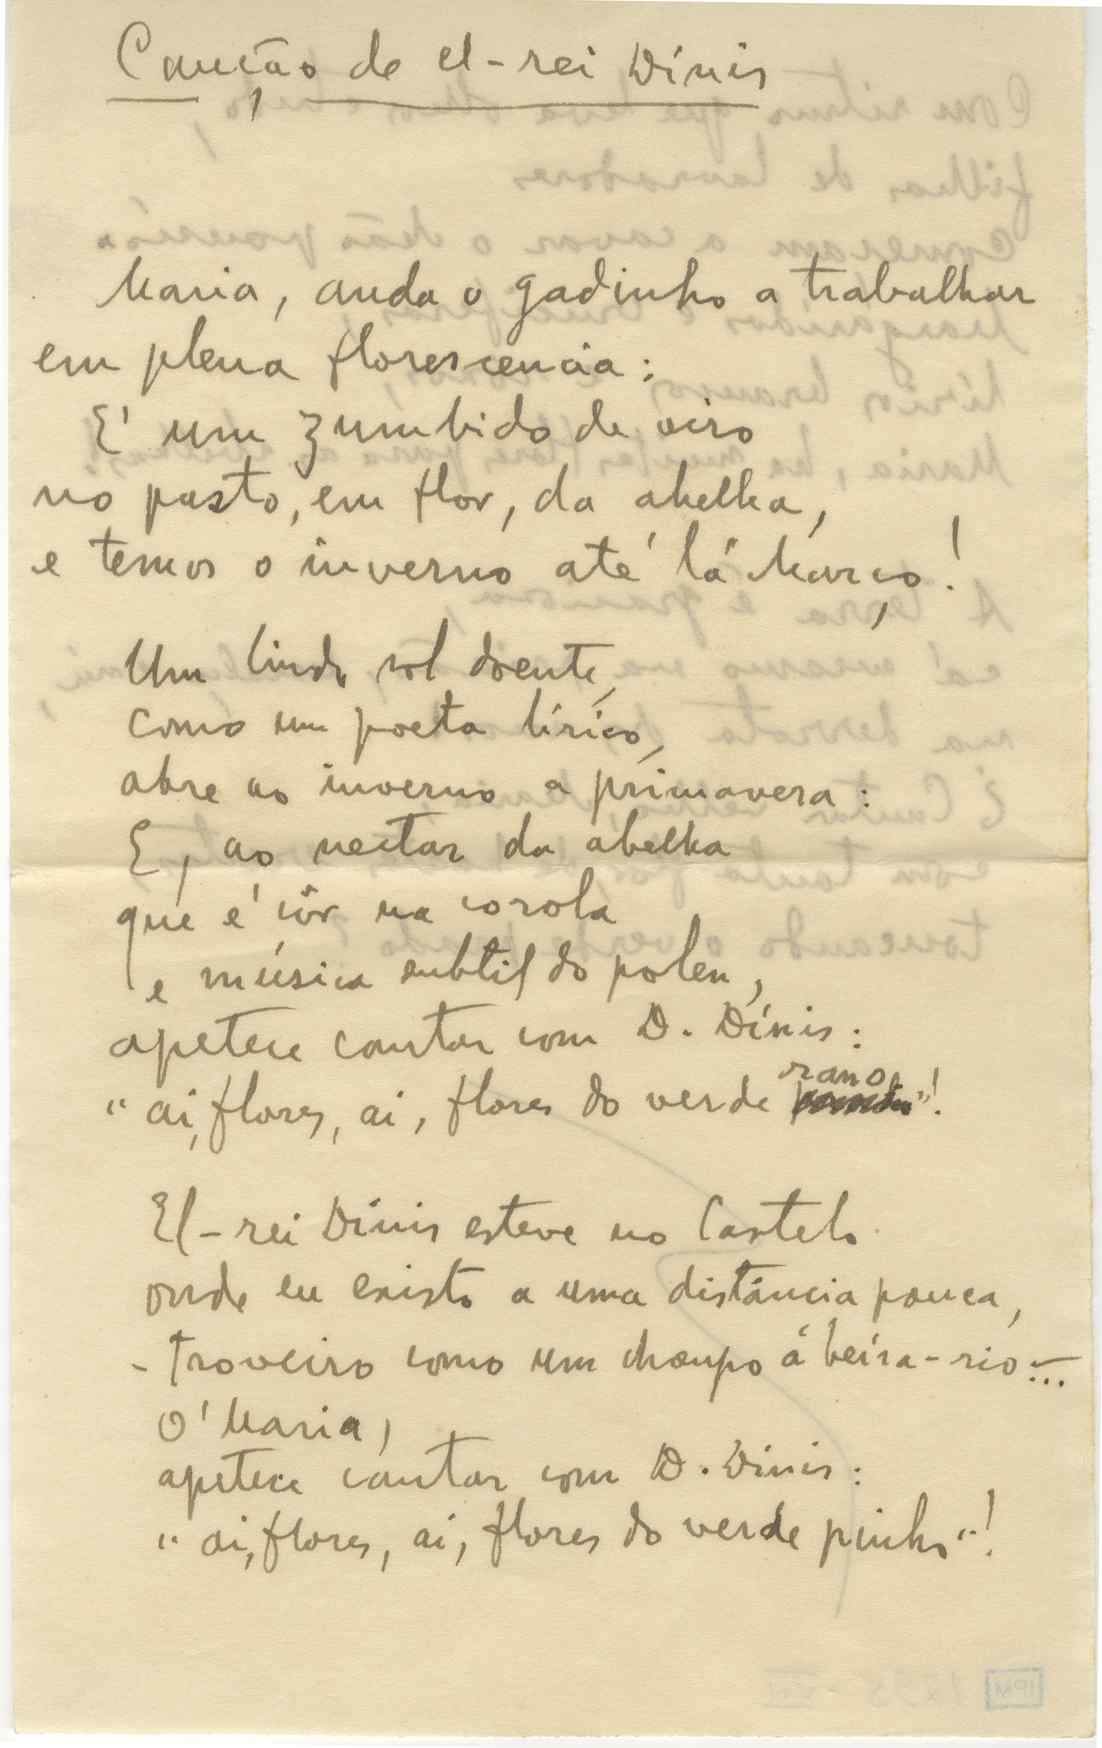 Canção de el-rei Dínis
Maria, anda o gadinho a trabalhar
em plena florescencia:
E' um zumbido de oiro
no pasto, em flor, da abelha,
e temos o inverno até lá Março!
Um lindo sol doente,
como um poeta lírico,
abre ao inverno a primavera:
E, ao nectar da abelha
que é côr na corola
e música subtil do polen,
apetece cantar com D. Dínis:
"ai, flores, ai, flores do verde ramo"!
El-rei Dínis esteve no Castelo
onde eu existo a uma distância pouca,
- Troveiro como um choupo á beira-rio...
O' Maria,
apetece cantar com D. Dinis:
"ai, flores, ai, flores do verde pinho"!